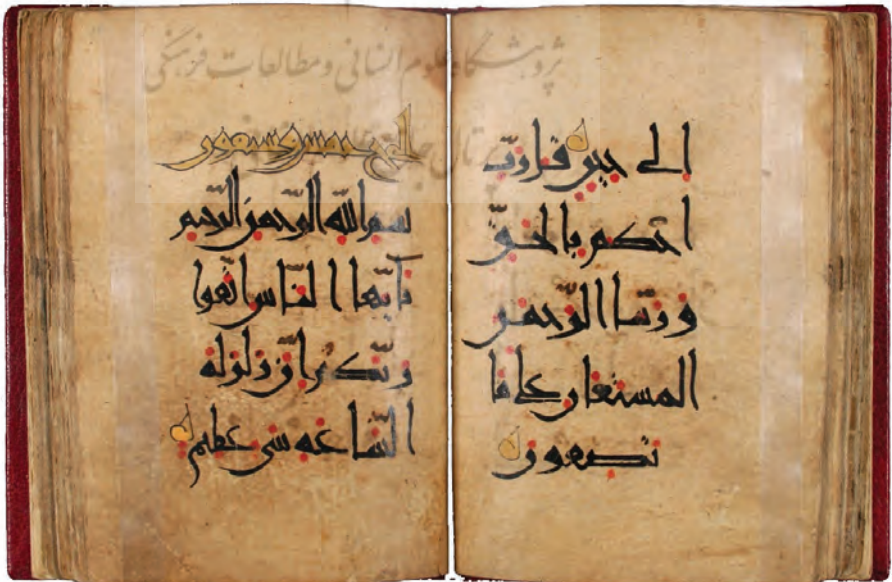 پژوهشگاه علوم انسانی و مطالعات فرهنگی
الى حين قل رب
احكم بالحقّ
و ربّنا الرّحمن
المستعان على ما
تصفون
الحج خمس و سبعون
بسم اللّه الرّحمن الرّحيم
يايّها النّاس اتّقوا
ربّكم انّ زلزلة
السّاعة شى عظيم